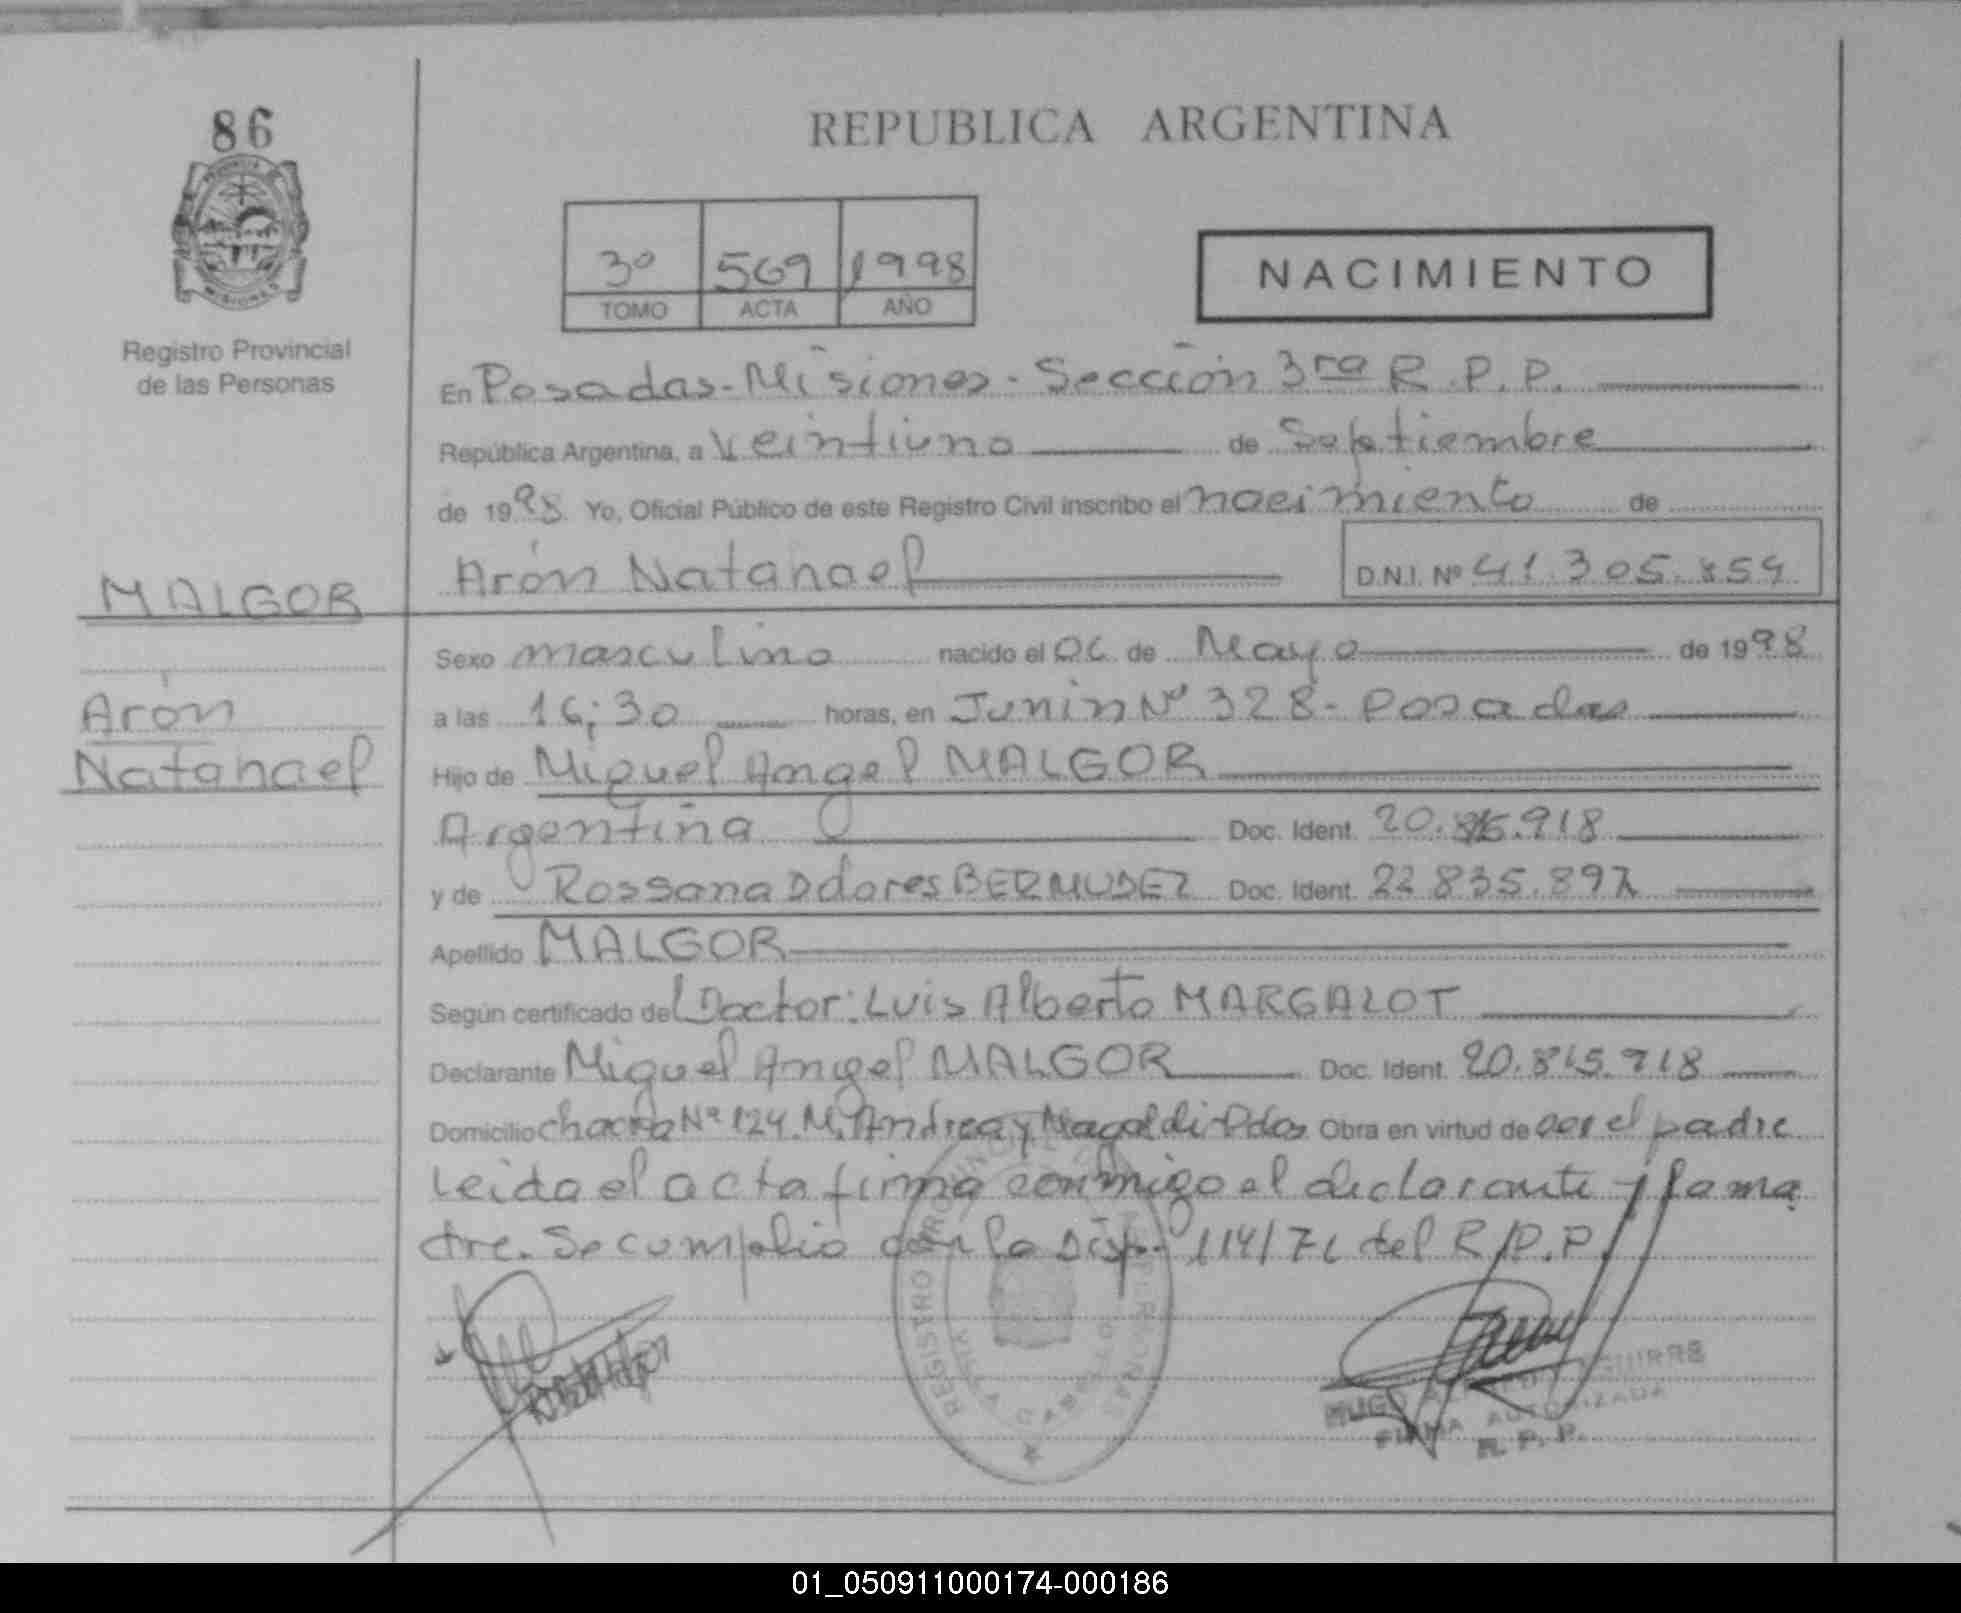 86
REPUBLICA ARGENTINA
MISIONES
Registro Provincial
de las Personas
3º 569 1998
TOMO ACTA AÑO
NACIMIENTO
En Posadas-Misiones-Sección 3ra R.P.P.
República Argentina, a veintiuno de Septiembre
de 1998 Yo, Oficial Público de este Registro Civil inscribo el nacimiento de
MALGOR
Arón Natanael
Arón Natanael D.N.I. Nº 41.305.854
Sexo masculino nacido el 06 de Mayo de 1998
a las 16;30 horas, en Junin Nº 328-Posadas
Hijo de Miguel Angel MALGOR
Argentina Doc. Ident. 20.815.918
y de Rossana Dolores BERMUDEZ Doc. Ident. 22.835.897
Apellido MALGOR
Según certificado del Doctor: Luis Alberto MARGALOT
Declarante Miguel Angel MALGOR Doc. Ident. 20.815.918
Domicilio chacra Nº 124. M. Andrea y Magaldi-Pdas Obra en virtud de ser el padre
Leida el acta firma conmigo el declarante y la ma
dre. Se cumplio con la Disp. 114/76 del R.P.P.
REGISTRO PROVINCIAL DE LAS PERSONAS
VILLA CABELLO
HUGO AGUIRRE
FIRMA AUTORIZADA
R. P. P.
01_050911000174-000186